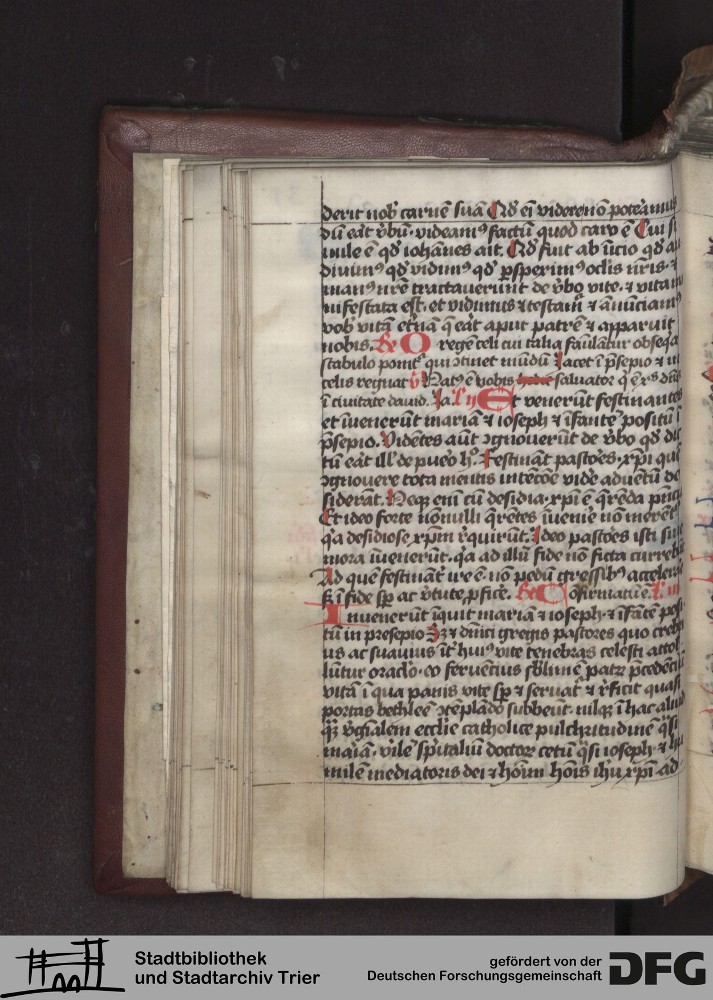 derit nob̅ carnē suā Qd̓ eī videre nō poteramus
dū eāt v̓bū · videamꝰ factū quod caro ē Cui si
mile ē qd̓ iohānes ait. Qd̓ fuit ab īicio qd̓ au
diuimꝰ qd̓ vidimꝰ qd̓ ꝑsperimꝰ oclis nr̄is · ⁊
manꝰ nr̄e tractauerūt de v̓bo vite · ⁊ vita ma
nifestata est · et vidimus ⁊ testam̄ ⁊ ānūciamꝰ
vob̅ vitā et̓nā q̄ eāt aput patrē ⁊ apparuit
nobis. Re O regē celi cui talia famulātur obseqa
stabulo ponit̄ qui ꝯtinet mūdū Jacet ī p̄sepio ⁊ in
celis regnat v̓ Natꝰ ē vobis hodie saluator q̄ ē xp̄s dn̄s
ī ciuitate dauid. Ja. l' ij Et venerūt festinantes
et īuenerūt mariā ⁊ ioseph ⁊ īfantē positū ī
p̄sepio. Vidētes aūt ꝯgnouerūt de v̓bo qd̓ dic
tū eāt ill' de puero h°. Festināt pastōes · xp̄i que
ꝯgnouere tota mentis intēcōe vid̓e aduētū de
siderāt. Neqꝫ enī cū desidia · xp̄i ē q̄rēda p̄nc̄ia
Et ideo forte nōnulli q̄rētes īuenie nō merēt̄
qa desidiose xp̄m r̓quirūt. Ideo pastōes isti sine
mora īuenerūt · qa ad illū fide nō ficta currebāt
Ad quē festināt̄ ire ē · nō pedū gressibꝰ accelerāt
ſꝫ ī fide sp̄ ac v̓tute ꝓfice. Re Cōfirmatū ē. l' iij
Inuenerūt īquit mariā ⁊ ioseph · ⁊ īfātē posi
tū in presepio Jꝫ ⁊ dn̄ici gregis pastores quo crebri
us ac suauius īt̄ huiꝰ vite tenebras celesti attol
lūtur oraclo · eo feruēcius sb̓limē patr̄ p̄cedēciū
vitā ī qua panis vite sp̄ ⁊ seruat̄ ⁊ r̓ficit quasi
portas bethleē ꝯtēplādo subbeūt · nilqꝫ ī hac aliud
qꝫ v̓ginalem ecclīe catholice pulchritudinē q̄si
mar̄iā · virile sp̄italiū doctor̄ cetū q̄si ioseph · ⁊ hu
milē mediatoris dei ⁊ hoīm hoīs ih̄u xp̄i ad
Stadtbibliothek
und Stadtarchiv Trier
gefördert von der
Deutschen Forschungsgemeinschaft
DFG